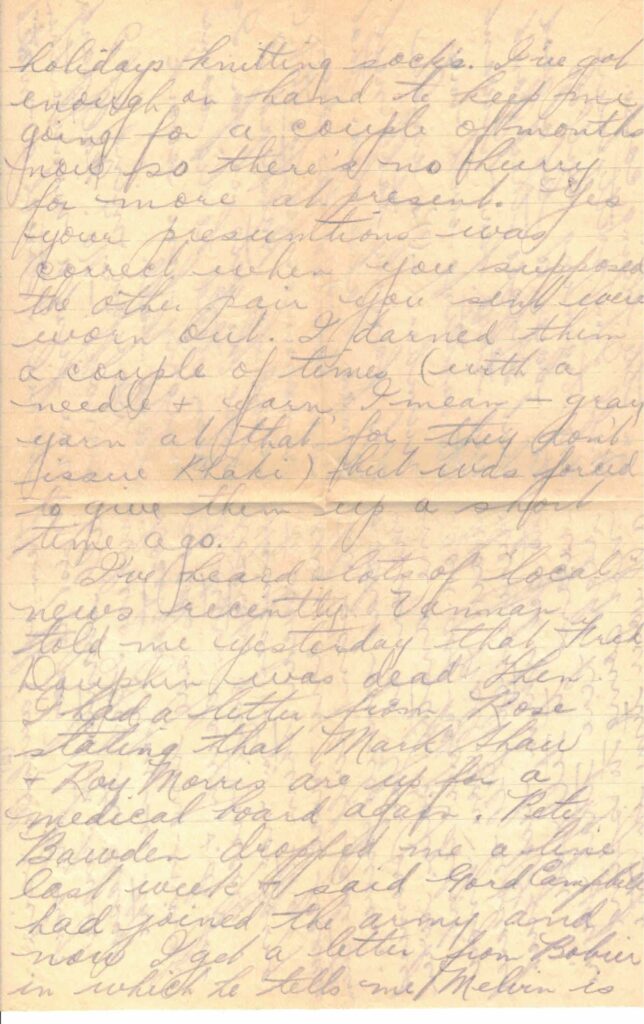 holidays knitting socks. I've got
enough on hand to keep me
going for a couple of months
now so there's no hurry
for more at present. Yes
your presumtions was
correct when you supposed
the other pair you sent were
worn out. I darned them
a couple of times (with a
needle + yarn, I mean - gray
yarn at that for they don't
issue Khaki) but was forced
to give them up a short
time ago.
I've heard lots of "local"
news recently. Vannan
told me yesterday that Fred
Dauphin was dead. Then
I had a letter from Rose
stating that Mark Shaw
+ Roy Morris are up for a
medical board again. Pete
Bawden dropped me a line
last week + said Gord Campbell
had joined the army and
now I get a letter from Bobier
in which he tells me Melvin is